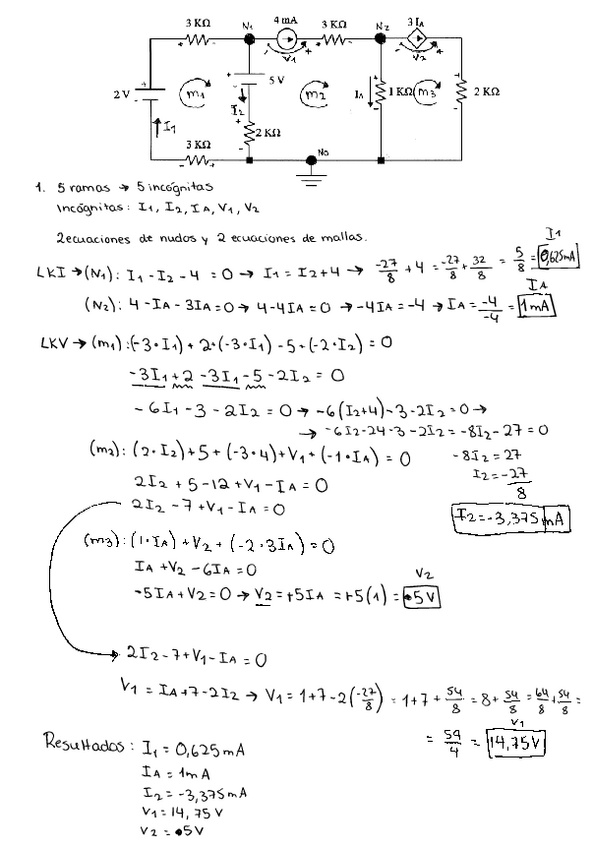 3 KΩ N1 4 mA 3 KΩ N2 3 IA
V1 V2
2 V m1 5 V m2 IA 1 KΩ m3 2 KΩ
I1 I2 2 KΩ
3 KΩ N0
1. 5 ramas → 5 incógnitas
Incógnitas: I1, I2, IA, V1, V2
2 ecuaciones de nudos y 2 ecuaciones de mallas.
LKI → (N1): I1 - I2 - 4 = 0 → I1 = I2 + 4 → -27/8 + 4 = -27/8 + 32/8 = 5/8 = 0,625mA I1
(N2): 4 - IA - 3IA = 0 → 4 - 4IA = 0 → -4IA = -4 → IA = -4/-4 = 1mA IA
LKV → (m1): (-3·I1) + 2 + (-3·I1) - 5 + (-2·I2) = 0
-3I1 + 2 - 3I1 - 5 - 2I2 = 0
-6I1 - 3 - 2I2 = 0 → -6(I2+4) - 3 - 2I2 = 0 →
→ -6I2 - 24 - 3 - 2I2 = -8I2 - 27 = 0
(m2): (2·I2) + 5 + (-3·4) + V1 + (-1·IA) = 0 -8I2 = 27
2I2 + 5 - 12 + V1 - IA = 0 I2 = -27/8
2I2 - 7 + V1 - IA = 0 I2 = -3,375mA
(m3): (1·IA) + V2 + (-2·3IA) = 0
IA + V2 - 6IA = 0
-5IA + V2 = 0 → V2 = +5IA = +5(1) = 5V V2
2I2 - 7 + V1 - IA = 0
V1 = IA + 7 - 2I2 → V1 = 1 + 7 - 2(-27/8) = 1 + 7 + 54/8 = 8 + 54/8 = 64/8 + 54/8 =
= 59/4 = 14,75V V1
Resultados: I1 = 0,625mA
IA = 1mA
I2 = -3,375mA
V1 = 14,75 V
V2 = 5V